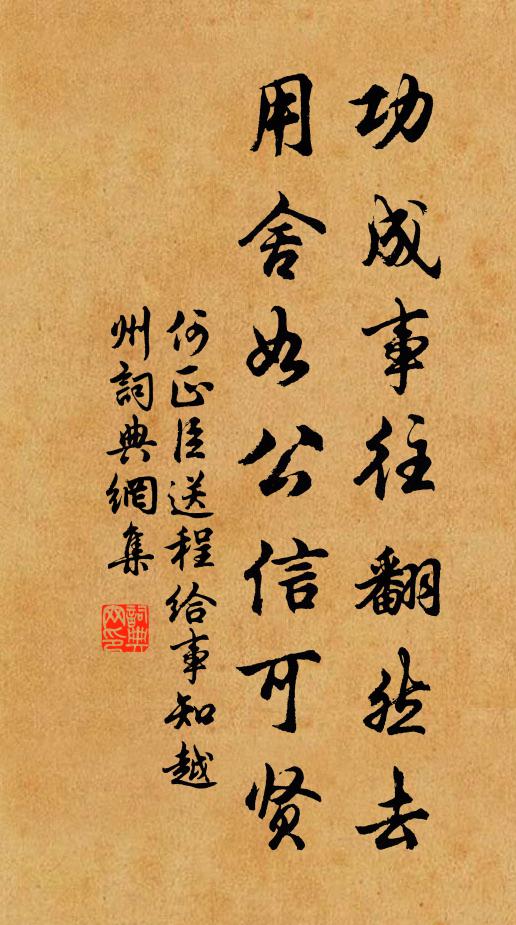 功成事往翻然去
用舍如公信可贤
何正臣送程给事知越
州詞典網集
詞典網印